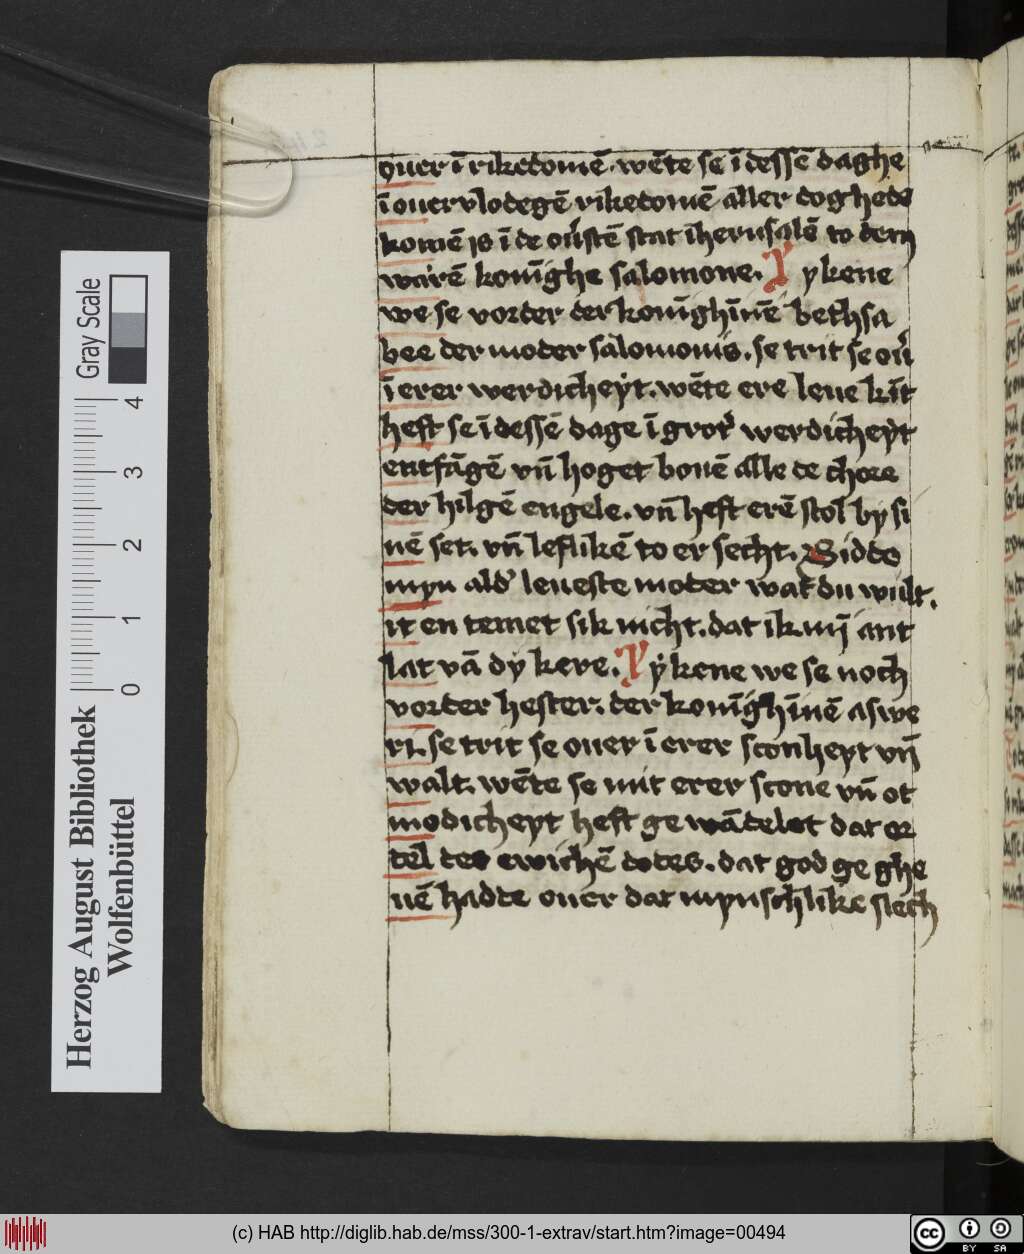 ouer ī riketomē. wēte se ī dessē daghe
ī ouervlodegē riketomē aller doghede
komē is ī de ou̓stē stat iherusalē to dem
warē konīghe salomone. Y ykene
we se vorder der konīghīnē bethsa
bee der moder salomonis. se trit se ou̓
ī erer werdicheẏt. wēte ere leue kīt
heft se ī dessē dage ī grot̓ werdicheẏt
entfāgē vn̄ hoget bouē alle de chore
der hilgē engele. vn̄ heft erē stol by si
nē set. vn̄ leflikē to er secht. Bidde
myn ald̓ leueste moder wat du wult.
it en temet sik nicht. dat ik mẏ ant
lat vā dẏ kere. Y ẏkene we se noch
vorder hester. der konīghīnē aswe
ri. se trit se ouer ī erer sconheyt vn̄
walt. wēte se mit erer scone vn̄ ot
modicheyt heft ge wādelet dat or
del des ewichē dodes. dat god ge ghe
uē hadde ouer dat mynschlike slech
Gray Scale
0 1 2 3 4
Herzog August Bibliothek
Wolfenbüttel
(c) HAB http://diglib.hab.de/mss/300-1-extrav/start.htm?image=00494
cc BY SA